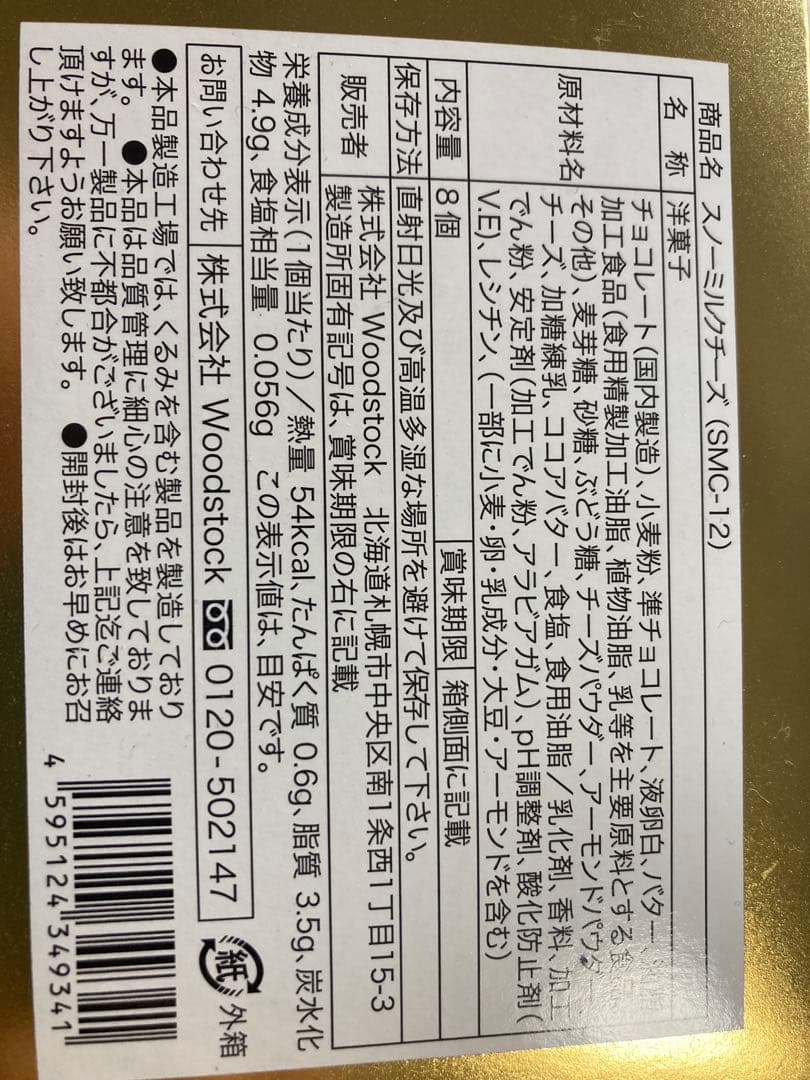 商品名 スノーミルクチーズ (SMC-12)
名 称 洋菓子
原材料名 チョコレート(国内製造)、小麦粉、準チョコレート、液卵白、バター、
加工食品(食用精製加工油脂、植物油脂、乳等を主要原料とする食品、
その他)麦芽糖、砂糖、ぶどう糖、チーズパウダー、アーモンドパウダー、
チーズ、加糖練乳、ココアバター、食塩、食用油脂/乳化剤、香料、加工
でん粉、安定剤(加工でん粉、アラビアガム)、pH調整剤、酸化防止剤(
V.E)、レシチン、(一部に小麦・卵・乳成分・大豆・アーモンドを含む)
内容量 8個 賞味期限 箱側面に記載
保存方法 直射日光及び高温多湿な場所を避けて保存して下さい。
販売者 株式会社 Woodstock 北海道札幌市中央区南1条西1丁目15-3
製造所固有記号は、賞味期限の右に記載
栄養成分表示(1個当たり)/熱量 54kcal、たんぱく質 0.6g、脂質 3.5g、炭水化
物 4.9g、食塩相当量 0.056g この表示値は、目安です。
お問い合わせ先 株式会社 Woodstock 0120-502147
紙 外箱
●本品製造工場では、くるみを含む製品を製造しており
ます。 ●本品は品質管理に細心の注意を致しておりま
すが、万一製品に不都合がございましたら、上記迄ご連絡
頂けますようお願い致します。 ●開封後はお早めにお召
し上がり下さい。
4 595124 349341